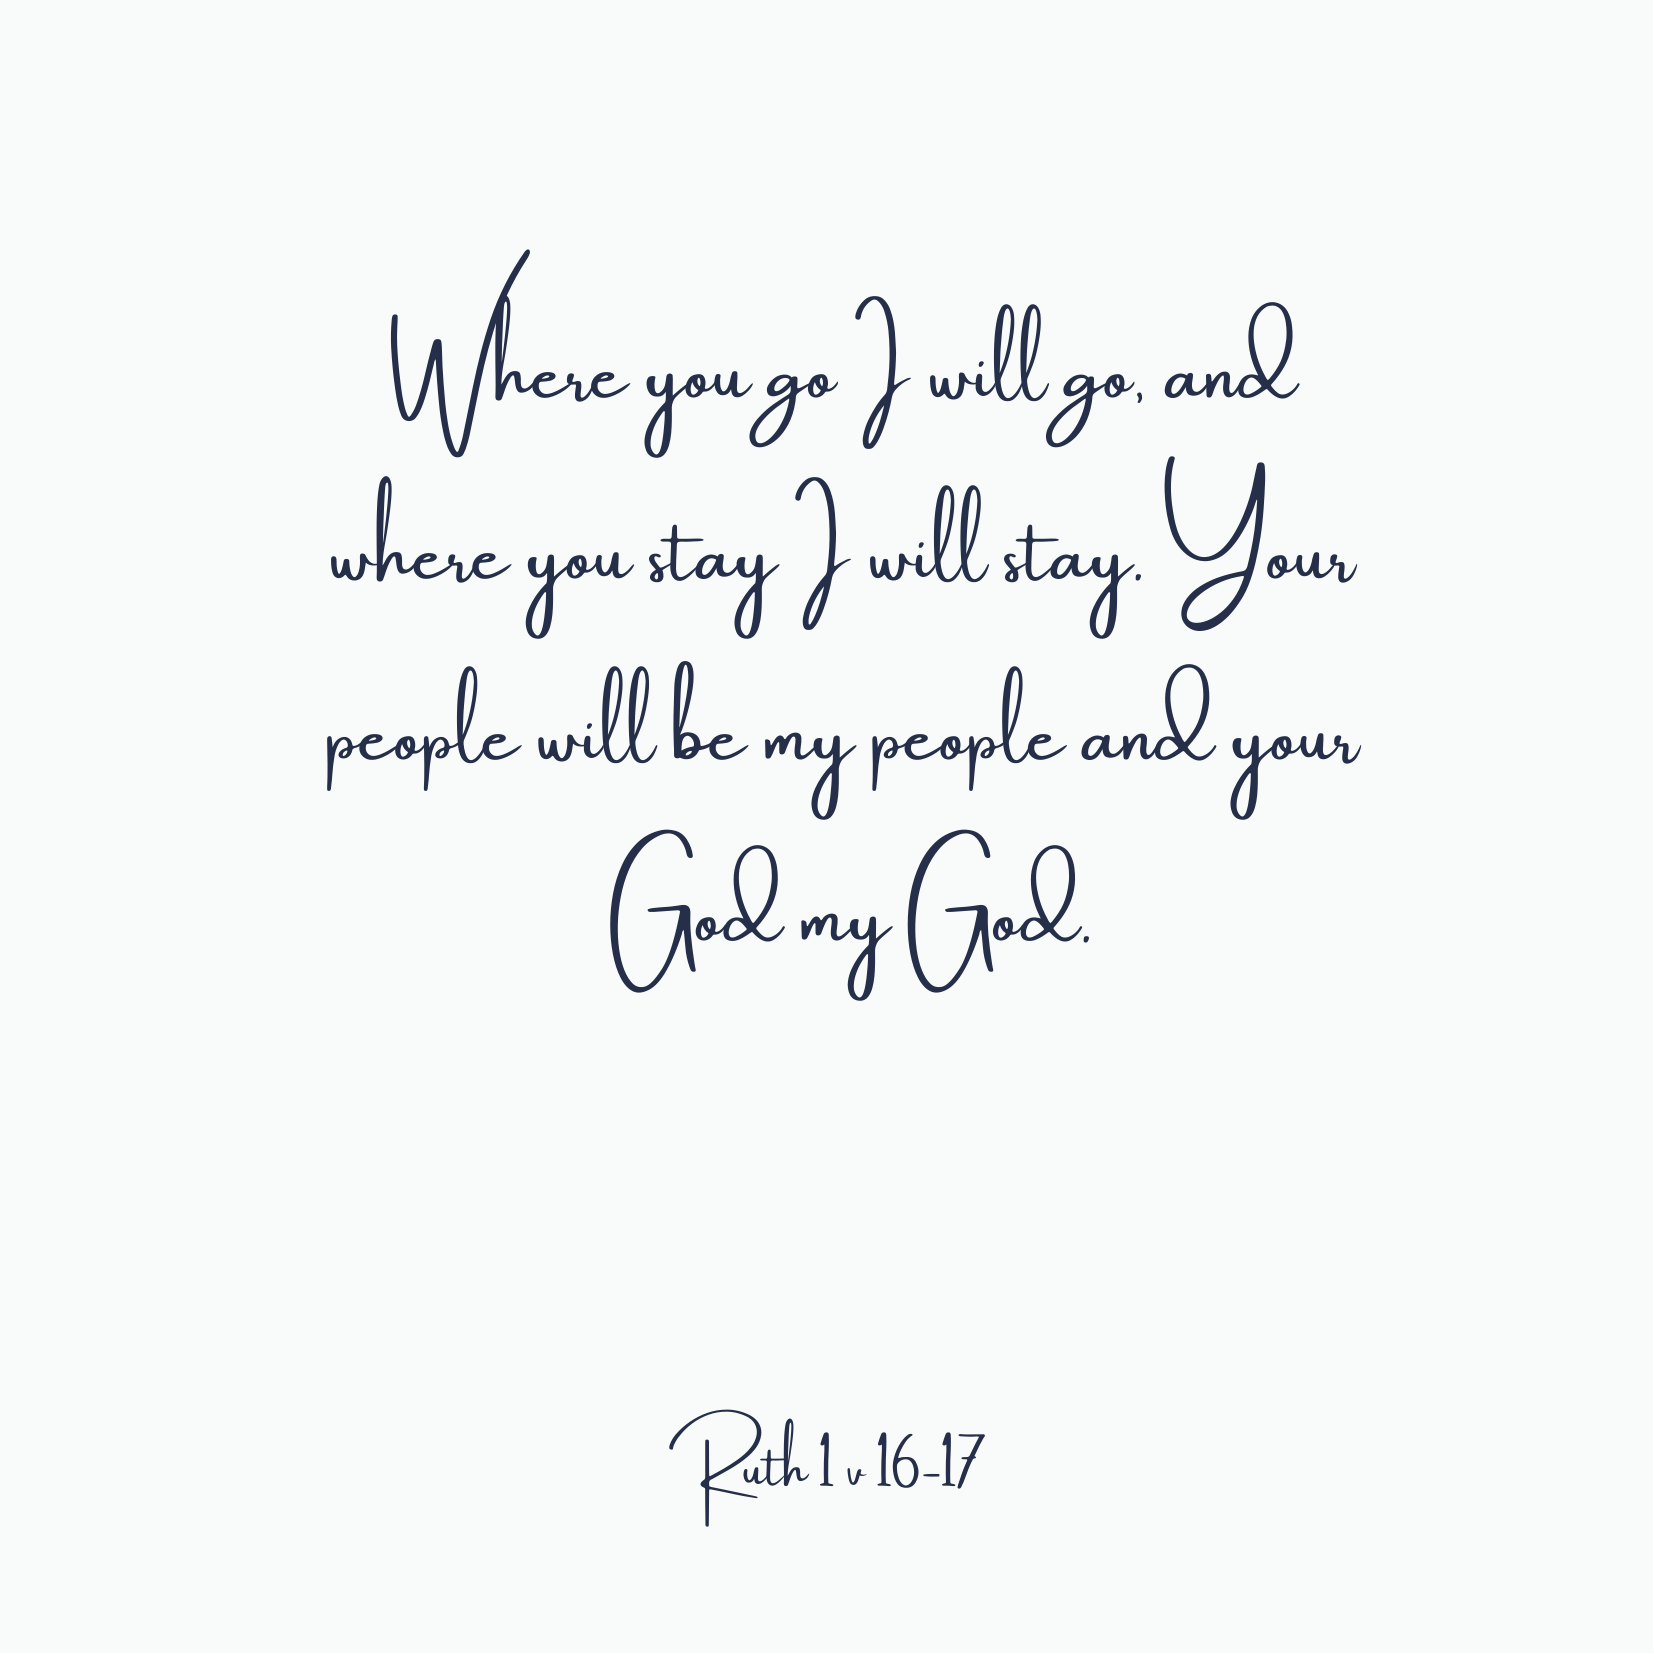 Where you go I will go, and
where you stay I will stay. Your
people will be my people and your
God my God.
Ruth 1 v 16-17